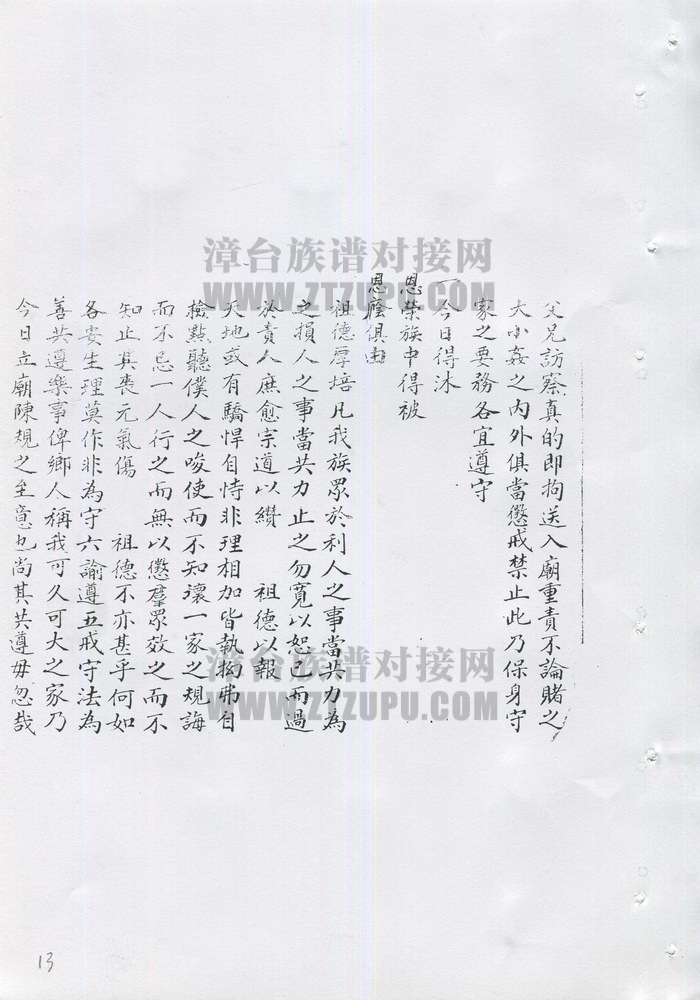 父兄訪察真的即拘送入廟重責不論賭之
大小姦之內外俱當懲戒禁止此乃保身守
家之要務各宜遵守
一今日得沐
恩榮族中得被
恩廕俱由
祖德厚培凡我族眾於利人之事當共力為
之損人之事當共力止之勿寬以恕己而過
於責人庶愈宗道以纘 祖德以報
天地或有驕悍自恃非理相加皆執拗弗自
檢點聽僕人之唆使而不知壞一家之規誨
而不忌一人行之而無以懲羣眾效之而不
知止其喪元氣傷 祖德不亦甚乎何如
各安生理莫作非為守六諭遵五戒守法為
善共遵樂事俾鄉人稱我可久可大之家乃
今日立廟陳規之至意也尚其共遵毋忽哉
漳台族谱对接网
WWW.ZTZUPU.COM
漳台族谱对接网
WWW.ZTZUPU.COM
13